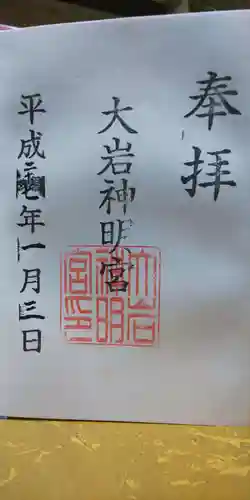 奉拝
大岩神明宮
平成二七年一月三日
大岩神明宮印